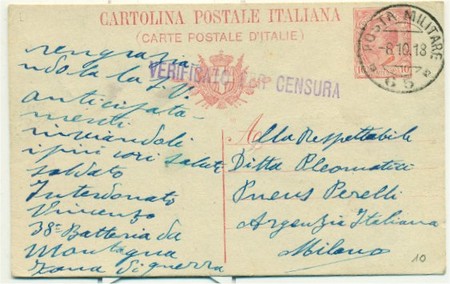 CARTOLINA POSTALE ITALIANA
(CARTE POSTALE D'ITALIE)
POSTA MILITARE
-8.10.18
VERIFICATO PER CENSURA
ringrazia
ndo la
anticipata-
mente
inviandoli
i più cori saluti
soldato
Interdonato
Vincenzo
38ª Batteria da
Montagna
Zona di guerra
Alla Respettabile
Ditta Pleomatici
Pneus Perelli
Argenzia Italiana
Milano
10